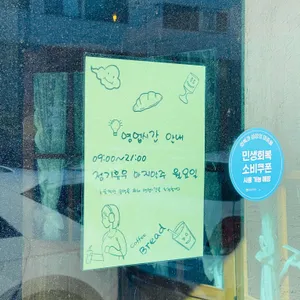 영업시간 안내
09:00~21:00
정기휴무 마지막주 월요일
Coffee
Bread.
민생회복
소비쿠폰
사용 가능 매장